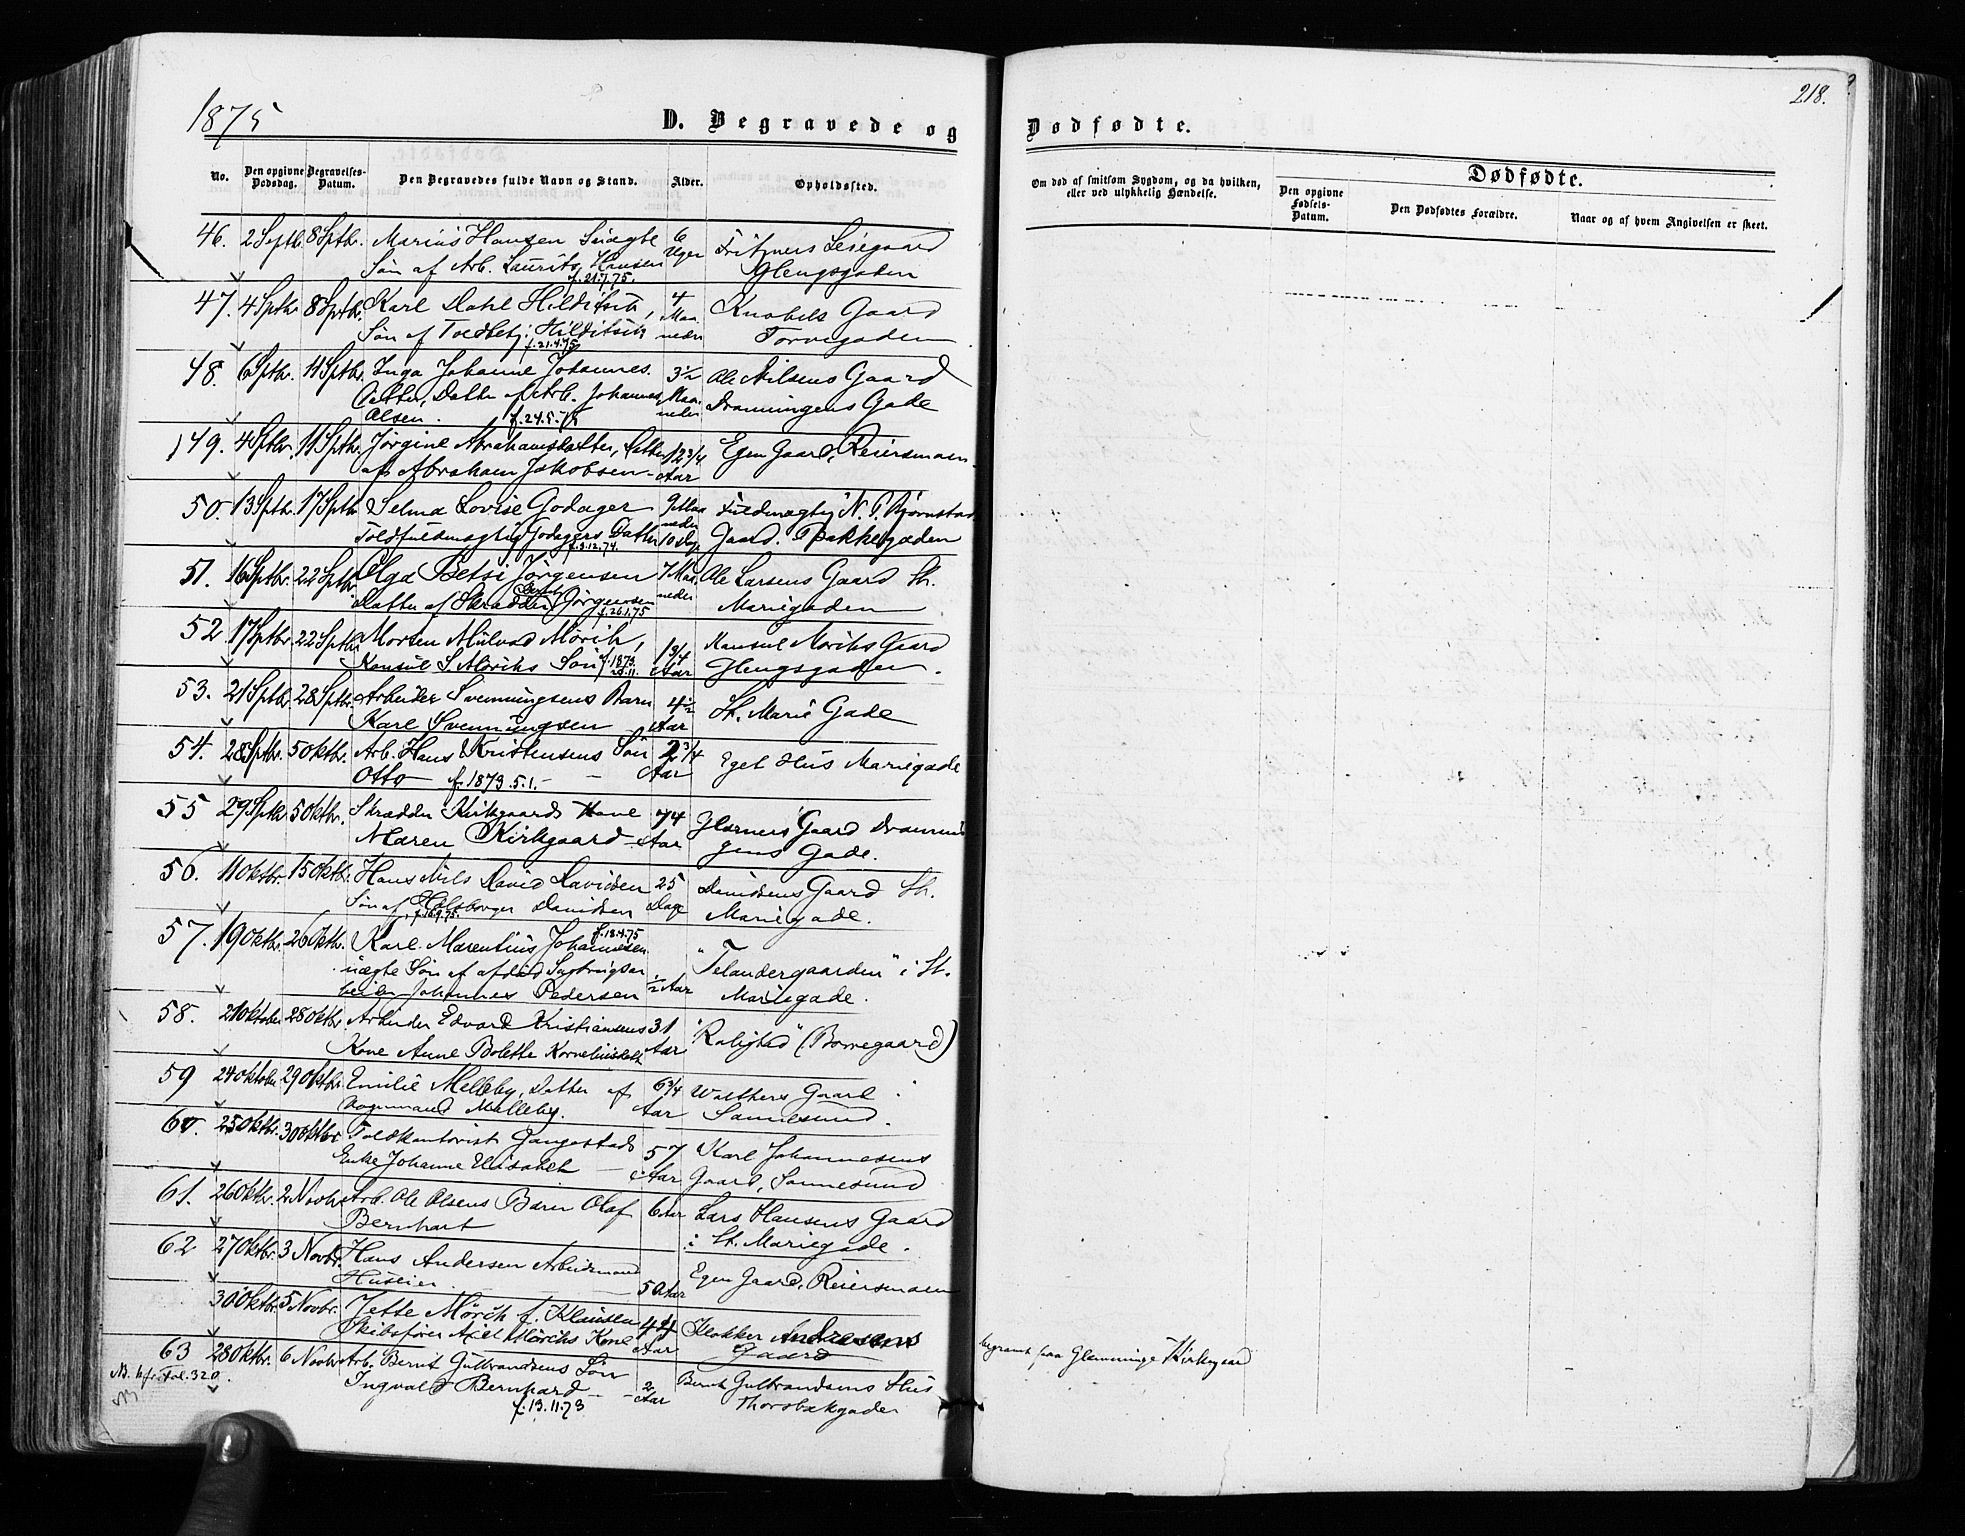 1875
D. Begravede og
Dødfødte.
218.
No.
Den opgivne Dødsdag.
Begravelses-Datum.
Den Begravedes fulde Navn og Stand.
Alder.
Opholdssted.
Om død af smitsom Sygdom, og da hvilken, eller ved ulykkelig Hændelse.
Dødfødte.
Den opgivne Fødsels-Datum.
Den Dødfødtes Forældre.
Naar og af hvem Angivelsen er skeet.
46. 2 Septb. 8 Sptbr. Marius Hansen Uægte 6 Uger
Søn af Arb. Laurits Hansen f. 21.7.75. Glengsgaden
47. 4 Sptbr 8 Sptbr. Karl Dahl Hilditsch, 4 Maaneder Knobels Gaard
Søn af Toldbetj. Hilditsch f. 21.4.75 Torvegaden
48. 6 Sptbr. 11 Sptbr. Inga Johanne Johannes. 3½ Maaneder Ole Nilsens Gaard
Datter, Datter af Arb. Johannes Dronningens Gade
Olsen. f. 24.5.75
49. 4 Sptbr. 11 Sptbr. Jørgine Abrahamsdatter, Datter 12 3/4 Aar Egen Gaard, Reiersmoen
af Abraham Jakobsen
50. 13 Sptbr. 17 Sptbr Selma Lovise Godager 9 Maaneder 10 Dge Fuldmægtig N. P. Bjørnstads
Toldfuldmægtig Godagers Datter f. 3.12.74. Gaard. Bakkegaden
51. 16 Sptbr. 22 Sptbr. Olga Betsi Jørgensen 7 Maaneder Ole Larsens Gaard St.
Datter af Skrædder Jørgensen f. 26.1.75 Mariegaden
52. 17 Sptbr. 22 Sptbr Morten Mulvad Mørch, 1 3/4 Aar Konsul Mørchs Gaard
Konsul S Mørchs Søn f. 1873. 29.11. Glengsgaden.
53. 21 Sptbr. 28 Sptbr. Arbeider Svenningsens Barn 4½ Aar St. Marie Gade
Karl Svenningsen
54. 28 Sptbr. 5 Oktbr. Arb. Hans Kristensens Søn 2 3/4 Aar Eget Hus Mariegade
Otto f. 1873.5.1.
55 29 Sptbr 5 Oktbr. Skrædder Kirkgaards Kone 74 Aar Glarners Gaard Dronnin
Maren Kirkgaard gens Gade.
56. 11 Oktbr. 15 Oktbr. Hans Nils David Davidsen 25 Dage Davidsens Gaard St.
Søn af Davidsen f. 16.9.75. Mariegade.
57. 19 Oktbr. 26 Oktbr. Karl Marentius Johannesen f. 18.4.75 ½ Aar "Telandergaarden" i St.
uægte Søn af afdød Sagbrugsar Mariegade.
beider Johannes Pedersen
58. 21 Oktober 28 Oktbr Arbeider Edvard Kristiansens 31 Aar "Rolighed" (Borregaard)
Kone Anne Bolette Korneliusdatt
59 24 Oktober 29 Oktbr. Emilie Melleby, Datter af 6 3/4 Aar Walthers Gaard
Vognmand Melleby. Sannesund.
60. 25 Oktbr. 30 Oktbr Toldkontorist Gangestads 57 Aar Karl Johannesens
Enke Johanne Elisabeth Gaard, Sannesund
61. 26 Oktbr. 2 Novbr Arb. Ole Olsens Barn Olaf 6 Aar Lars Hansens Gaard
Bernhart i St. Mariegade.
62 27 Oktbr. 3 Novbr. Hans Andersen Arbeidsmand 50 Aar Egen Gaard, Reiersmoen
Huseier.
30 Oktbr. 5 Novbr. Jette Mørch f. Klausen 44 Aar Klokker Andresens begravet paa Glemminge Kirkegaard
Skibsfører Axel Mørchs Kone Gaard
63 28 Oktbr. 6 Novbr Arb. Bernt Gulbrandsens Søn 2 Aar Bernt Gulbrandsens Hus
Ingvald Bernhard f. 13.11.73 Thorsbækgaden
Fol. 320.